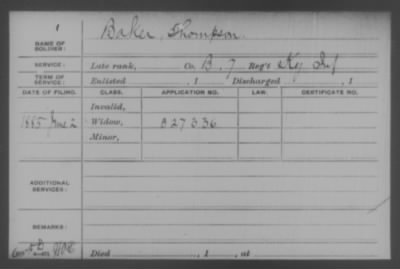 1
NAME OF SOLDIER: Baker, Thompson.
SERVICE: Late rank, Co. B, 7 Reg't Ky Inf
TERM OF SERVICE: Enlisted , 1 Discharged , 1
DATE OF FILING. CLASS. APPLICATION NO. LAW. CERTIFICATE NO.
Invalid,
1885 June 2 Widow, 327336
Minor,
ADDITIONAL SERVICES:
REMARKS:
Died , 1 , at